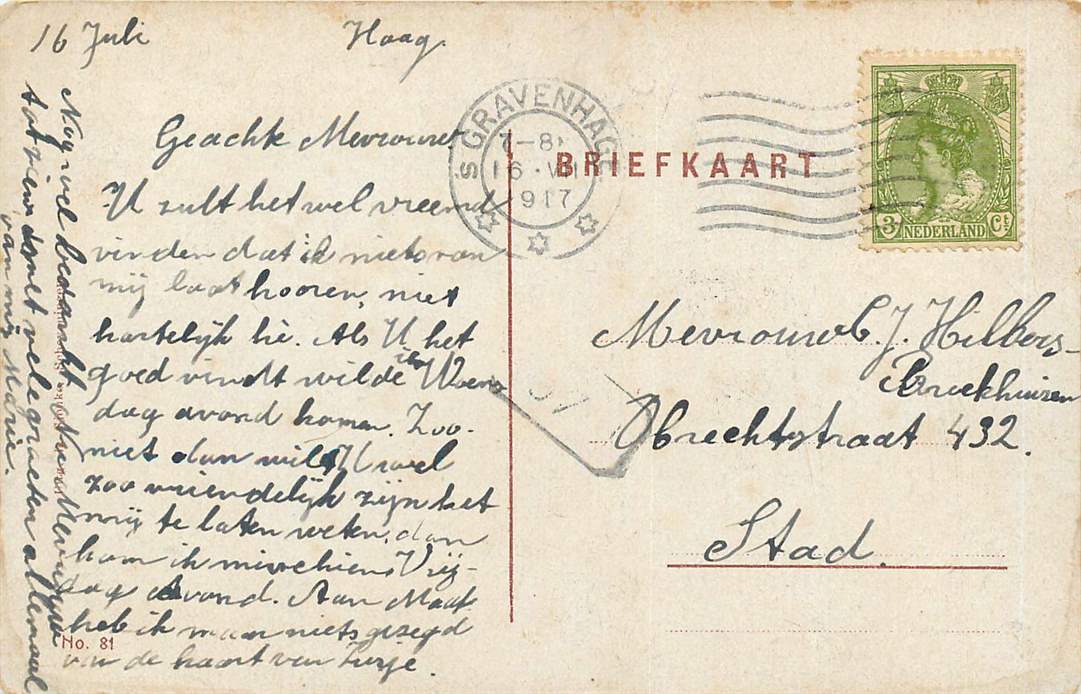 16 Juli Haag.
Geachte Mevrouw
U zult het wel vreemd
vinden dat ik niets van
mij laat hooren, niet
hartelijk hè. Als U het
goed vindt wilde ik Woens
dag avond komen. Zoo
niet dan wilt U wel
zoo vriendelijk zijn het
mij te laten weten, dan
kom ik misschien Vrij-
dag avond. Aan
heb ik maar niets gezegd
van de kaart van
Nog wel bedankt Mevrouw
tot ziens met vele groeten allemaal
van mij Marie.
No. 81
's GRAVENHAGE
7-8
16 VII
1917
BRIEFKAART
3 Ct
NEDERLAND
Mevrouw J. Hilbers-
Broekhuizen
Obrechtstraat 432.
Stad.